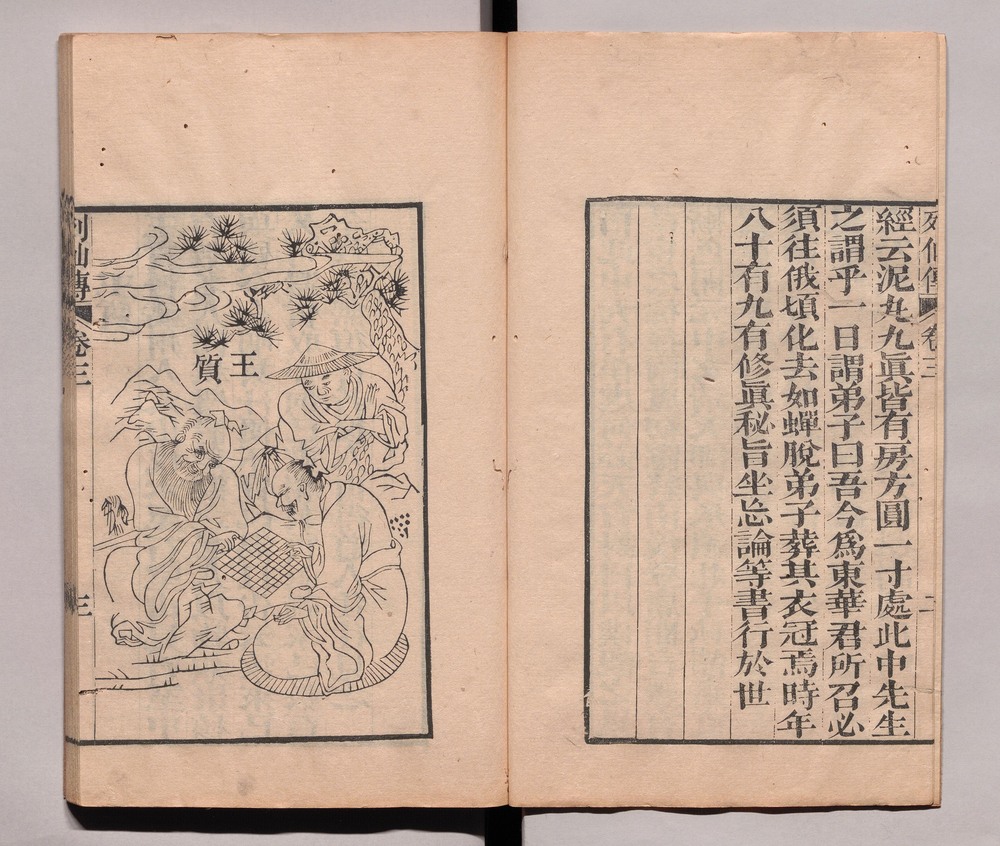 列仙傳 卷三 二
經云泥丸九眞皆有房方圓一寸處此中先生
之謂乎一日謂弟子曰吾今爲東華君所召必
須往俄頃化去如蟬脫弟子葬其衣冠焉時年
八十有九有修眞秘旨坐忘論等書行於世
王質
列仙傳 卷三 三